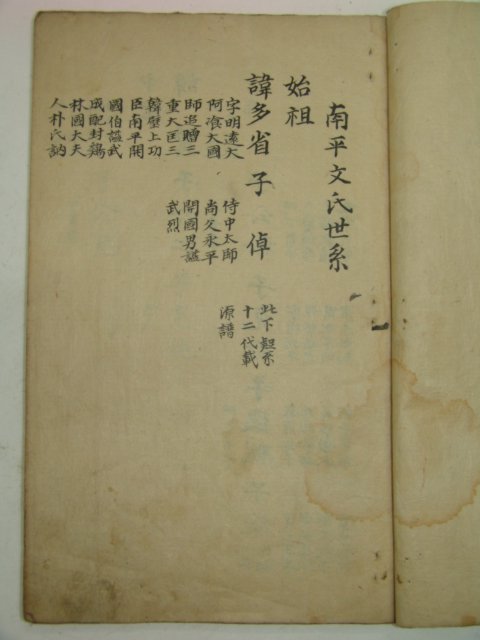 南平文氏世系
始祖
諱多省
字明遠大
阿飡大國
師追贈三
重大匡三
韓壁上功
臣南平開
國伯諡武
成配封鷄
林國大夫
人朴氏訥
子倬
侍中太師
尚父永平
開國男諡
武烈
此下繼系
十二代載
源譜